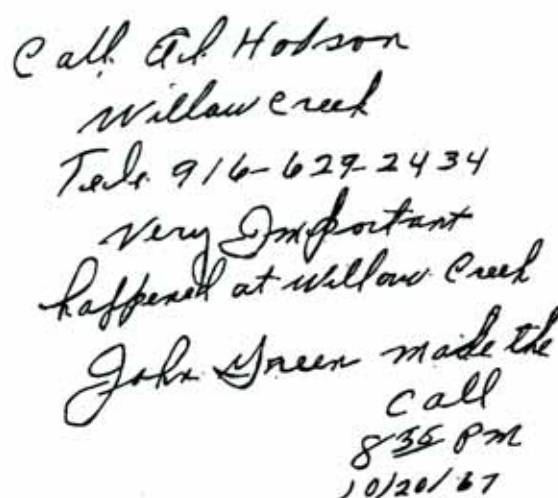 Call. Al Hodson
Willow Creek
Tele. 916-629-2434
Very Important
happened at Willow Creek
John Green made the
call
8 35 PM
10/20/67